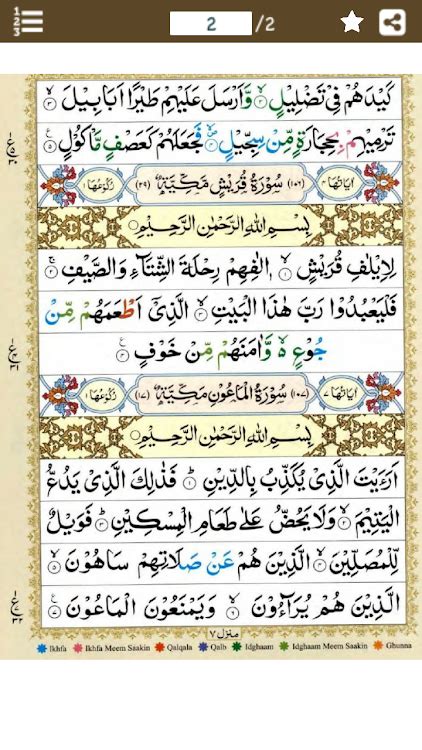 1 2 3
2 /2
كَيْدَهُمْ فِيْ تَضْلِيْلٍ ۙ۝۲ وَّاَرْسَلَ عَلَيْهِمْ طَيْرًا اَبَابِيْلَ ۙ۝۳
تَرْمِيْهِمْ بِحِجَارَةٍ مِّنْ سِجِّيْلٍ ۙ۝۴ فَجَعَلَهُمْ كَعَصْفٍ مَّاْكُوْلٍ ۝۵
اٰيَاتُهَا ۴ (۱۰۶) سُوْرَةُ قُرَيْشٍ مَكِّيَّةٌ (۲۹) رُكُوْعُهَا ۱
بِسْمِ اللهِ الرَّحْمٰنِ الرَّحِيْمِ
لِاِيْلٰفِ قُرَيْشٍ ۙ۝۱ اٖلٰفِهِمْ رِحْلَةَ الشِّتَآءِ وَالصَّيْفِ ۝۲
فَلْيَعْبُدُوْا رَبَّ هٰذَا الْبَيْتِ ۙ۝۳ الَّذِيْٓ اَطْعَمَهُمْ مِّنْ
جُوْعٍ ۙ۬ وَّاٰمَنَهُمْ مِّنْ خَوْفٍ ۝۴
اٰيَاتُهَا ۷ (۱۰۷) سُوْرَةُ الْمَاعُوْنِ مَكِّيَّةٌ (۱۷) رُكُوْعُهَا ۱
بِسْمِ اللهِ الرَّحْمٰنِ الرَّحِيْمِ
اَرَءَيْتَ الَّذِيْ يُكَذِّبُ بِالدِّيْنِ ۝۱ فَذٰلِكَ الَّذِيْ يَدُعُّ
الْيَتِيْمَ ۙ۝۲ وَلَا يَحُضُّ عَلٰى طَعَامِ الْمِسْكِيْنِ ۝۳ فَوَيْلٌ
لِّلْمُصَلِّيْنَ ۙ۝۴ الَّذِيْنَ هُمْ عَنْ صَلَاتِهِمْ سَاهُوْنَ ۙ۝۵
الَّذِيْنَ هُمْ يُرَآءُوْنَ ۙ۝۶ وَيَمْنَعُوْنَ الْمَاعُوْنَ ۝۷
منزل ۷
Ikhfa Ikhfa Meem Saakin Qalqala Qalb Idghaam Idghaam Meem Saakin Ghunna